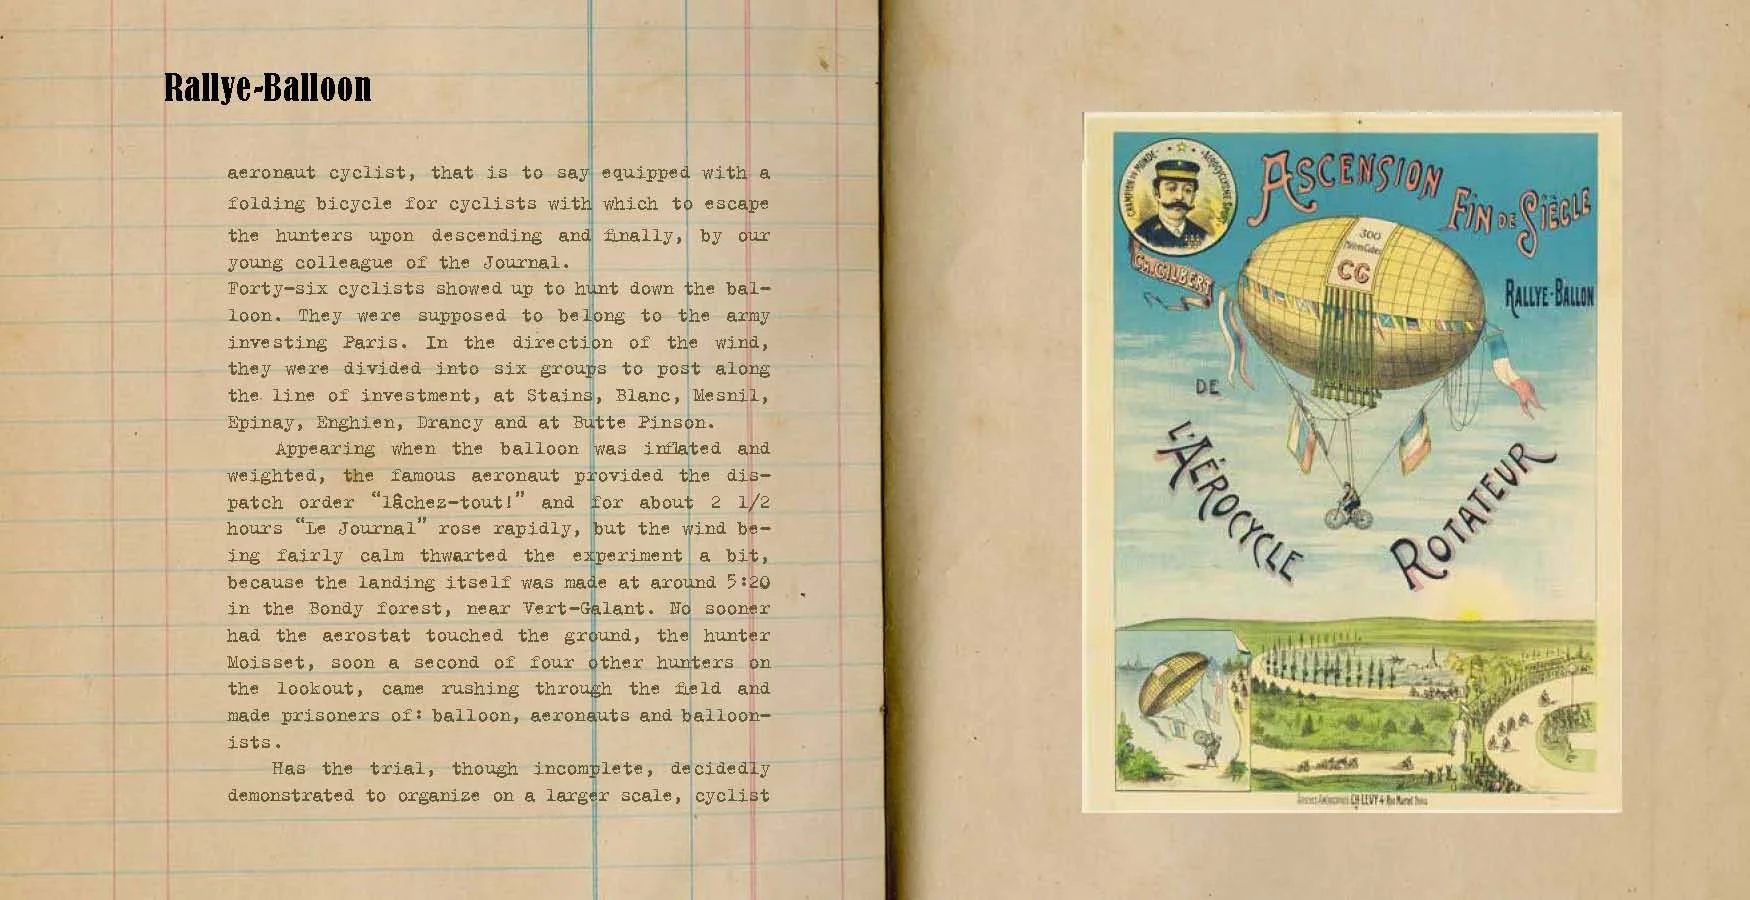 Rallye-Balloon
aeronaut cyclist, that is to say equipped with a
folding bicycle for cyclists with which to escape
the hunters upon descending and finally, by our
young colleague of the Journal.
Forty-six cyclists showed up to hunt down the bal-
loon. They were supposed to belong to the army
investing Paris. In the direction of the wind,
they were divided into six groups to post along
the line of investment, at Stains, Blanc, Mesnil,
Epinay, Enghien, Drancy and at Butte Pinson.
Appearing when the balloon was inflated and
weighted, the famous aeronaut provided the dis-
patch order “lâchez-tout!” and for about 2 1/2
hours “Le Journal” rose rapidly, but the wind be-
ing fairly calm thwarted the experiment a bit,
because the landing itself was made at around 5:20
in the Bondy forest, near Vert-Galant. No sooner
had the aerostat touched the ground, the hunter
Moisset, soon a second of four other hunters on
the lookout, came rushing through the field and
made prisoners of: balloon, aeronauts and balloon-
ists.
Has the trial, though incomplete, decidedly
demonstrated to organize on a larger scale, cyclist
CHAMPION DU MONDE
CH. GILBERT
ASCENSION
FIN DE SIÈCLE
300
CG
RALLYE-BALLON
DE
L'AÉROCYCLE
ROTATEUR
CH LEVY